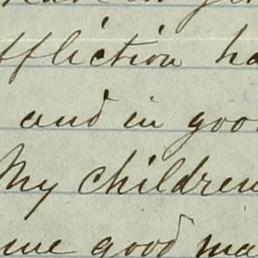 ffliction ha
and in goo
My children
me good ma